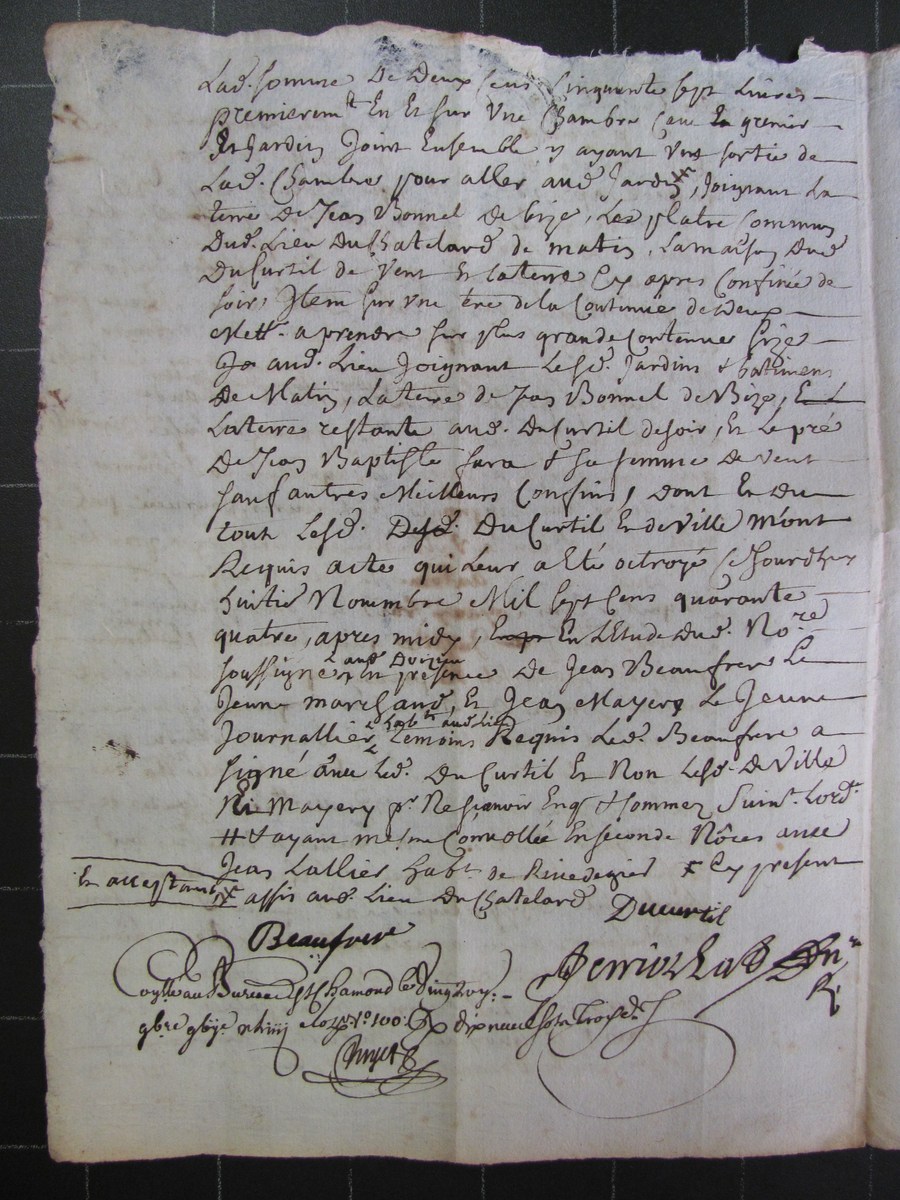 Lad. somme De Deux Cens Cinquante sept Livres
premierem.t En Et sur Une Chambre Cave En grenier
Et Jardin Joint Ensemble y ayant Une sortie de
Lad. Chambre pour aller aud. Jardin, Joignant La
terre de Jean Bonnel de bize, Les platre Commun
Dud. Lieu Du Chatelard de matin, La maison Dud.
Du Curtil de Vent Et laterre Cy apres Confinée de
soir, Item sur Une terre de la Contenue de Deux
Mett. a prendre sur plus grande Contenue size
aud. Lieu Joignant Lesd. Jardins & batimens
De Matin, La terre de Jean Bonnel de Bize, Et
Laterre restante aud. Du Curtil de soir, Et Le pré
De Jean Baptiste fara & sa femme De Vent
sauf autres Meilleurs Confins, dont En Du
tout Lesd. Desd. Du Curtil Et deVille m'ont
Requis acte qui Leur a Eté octroyé Ce Jourdhuy
huitie Novembre Mil sept Cens quarante
quatre, apres midy, En L'Etude Dud. No.re
soussigné En presence De Jean Beaufrere Le
Jeune marchand, Et Jean Mayery Le Jeune
Journallier habts aud. lieu Temoins Requis Led. Beaufrere a
signé avec Led. Du Curtil Et Non Lesd. de Ville
Ni Mayery pr. Ne sçavoir Enq. & sommez Suivt. Lord.
# & ayant mesme Convollée En seconde Nôces avec
Jean Lallier habt. de Rivedegier x Cy present
En attestant
x assis aud. Lieu Du Chatelard Ducurtil
Beaufrere
au Bureau de St Chamond le Vingt
100 dix neuf sols trois d.